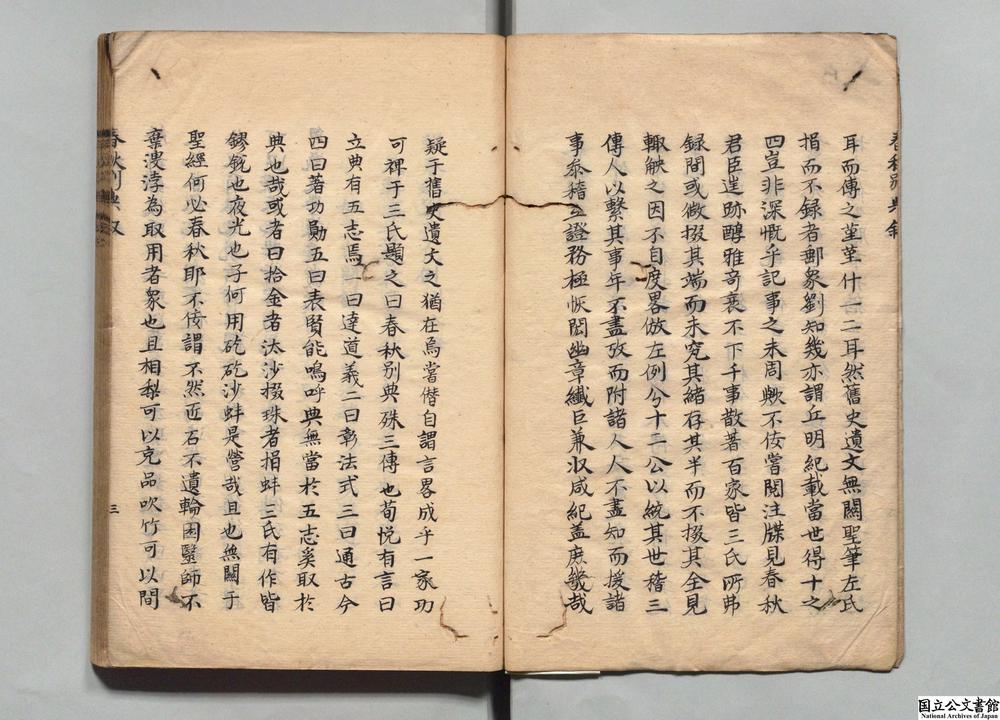 春秋別典叙
耳而傳之堇堇什一二耳然舊史遺文無關聖筆左氏
捐而不録者鄱衆劉知幾亦謂丘明紀載當世得十之
四豈非深慨乎記事之未周歟不佞嘗閱注牒見春秋
君臣遺跡醇雅竒衺不下千事散著百家皆三氏所弗
録間或微掇其端而未究其緒存其半而不掇其全見
輙觖之因不自度畧倣左例分十二公以統其世稽三
傳人以繫其事年不盡攷而附諸人人不盡知而援諸
事叅稽互證務極恢閎幽章纖巨兼収咸紀盖庶幾哉
疑于舊史遺文之猶在焉嘗僭自謂言畧成乎一家功
可裨于三氏題之曰春秋别典殊三傳也荀悦有言曰
立典有五志焉一曰達道義二曰彰法式三曰通古今
四曰著功勛五曰表賢能嗚呼典無當於五志奚取於
典也哉或者曰拾金者汰沙掇珠者捐蚌三氏有作皆
鏐鋭也夜光也子何用矻矻沙蚌是營哉且也無關于
聖經何必春秋耶不佞謂不然匠石不遺輪囷醫師不
棄溲浡為取用者衆也且相梨可以充品吹竹可以間
春秋別典叙
三
国立公文書館
National Archives of Japan